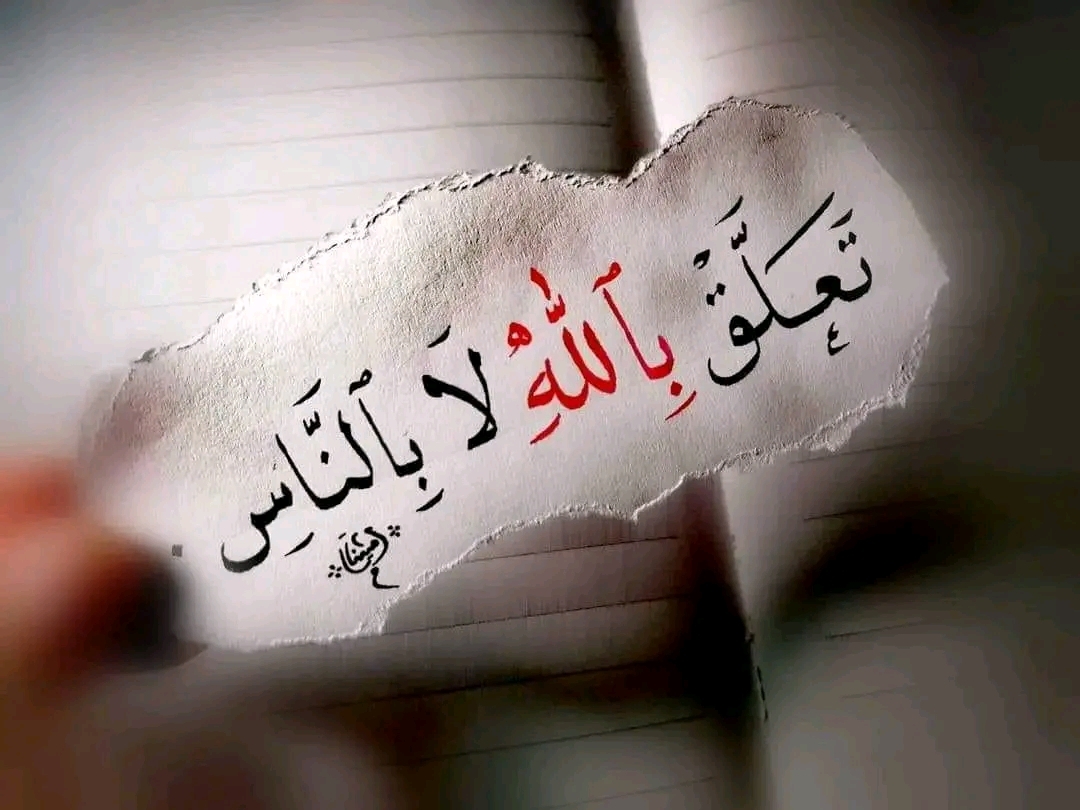 تَعَلَّقْ بِٱللَّهِ لَا بِٱلنَّاسِ